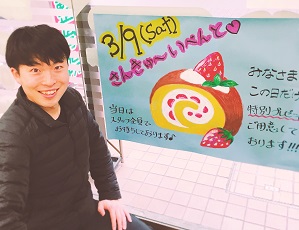 3/9(Sat)
さんきゅ〜いべんと♡
みなさま
この日だけ
特別
ご用意して
おります!!!
当日は
スタッフ全員で
お待ちしております♪